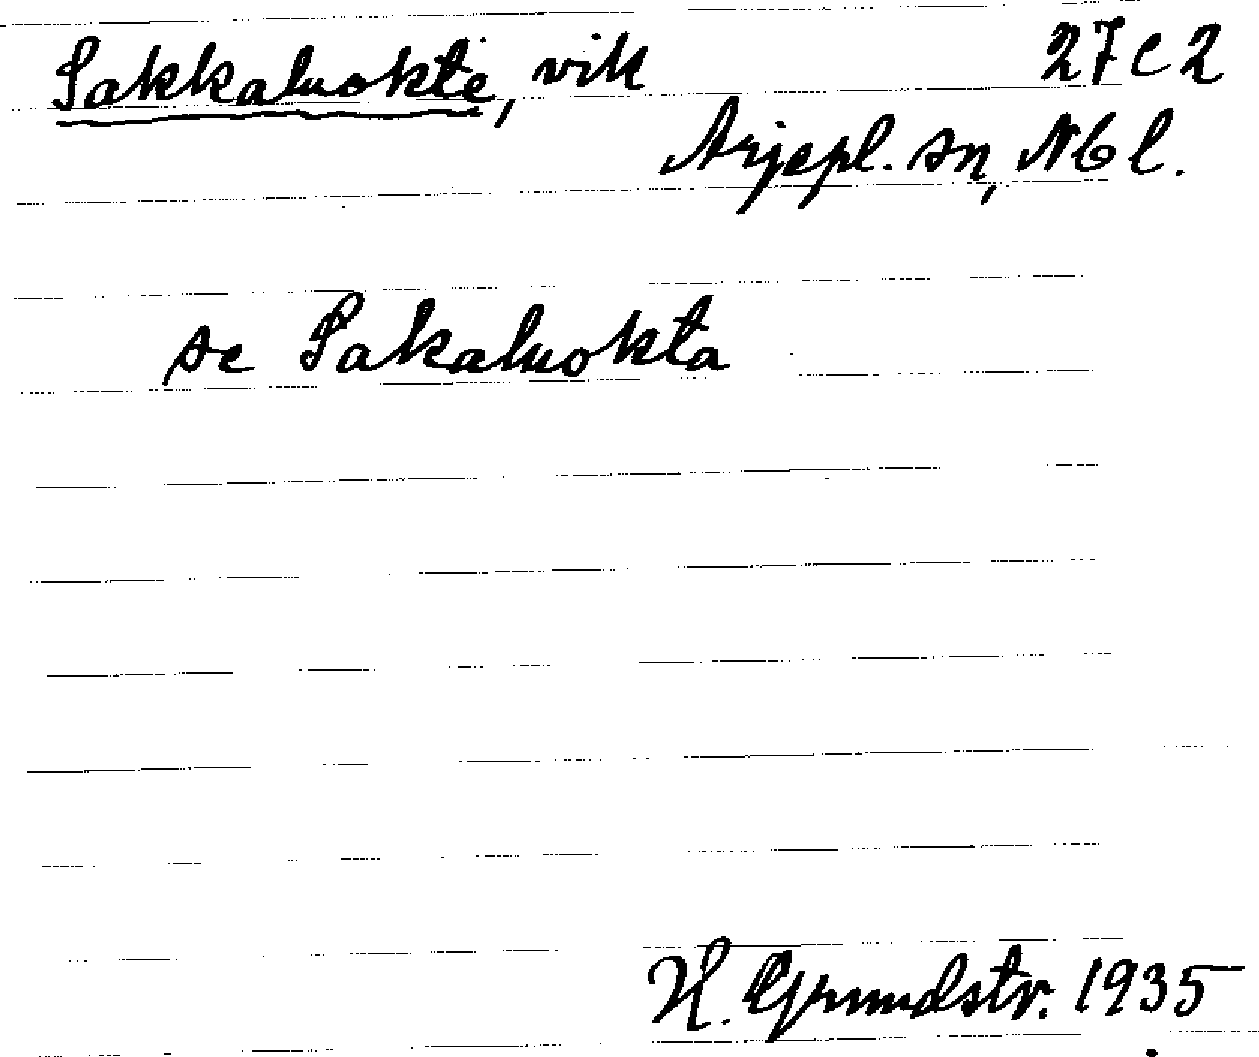 Sakkaluokte, vik 27C2
Arjepl. sn, Nbl.
se Sakaluokta
H. Grundstr. 1935